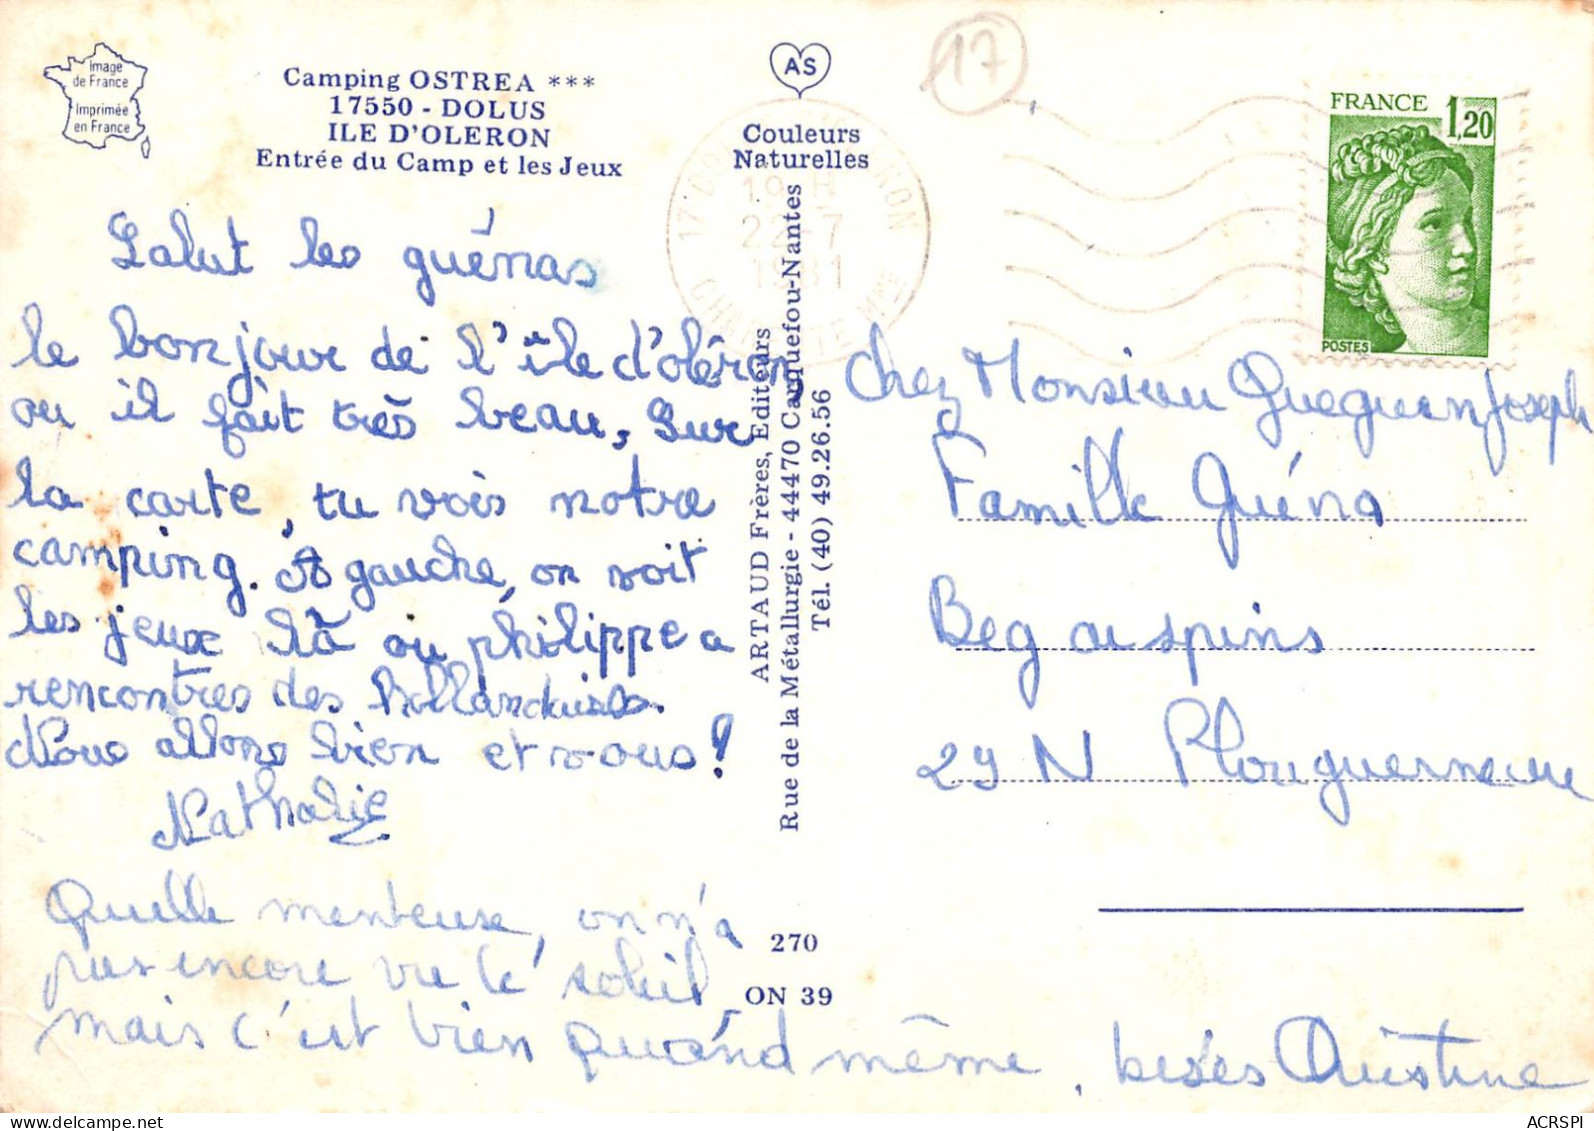 Image
de France
Imprimée
en France
Camping OSTREA ***
17550 - DOLUS
ILE D'OLERON
Entrée du Camp et les Jeux
AS
Couleurs
Naturelles
17
FRANCE 1,20
POSTES
19 H
22-7
1981
Salut les guénas
le bonjour de l'île d'oléron
ou il fait très beau, Sur
la carte, tu vois notre
camping. A gauche, on voit
les jeux là où philippe a
rencontres des hollandaises.
Nous allons bien et vous!
Nathalie
Quelle menteuse, on n'a
pas encore vu le soleil
mais c'est bien quand même, bises Christine
ARTAUD Frères, Editeurs
Rue de la Métallurgie - 44470 Carquefou-Nantes
Tél. (40) 49.26.56
270
ON 39
chez Monsieur Queguen Joseph
Famille Guéna
Beg ar spins
29 N Plouguerneau
delcampe.net
ACRSPI